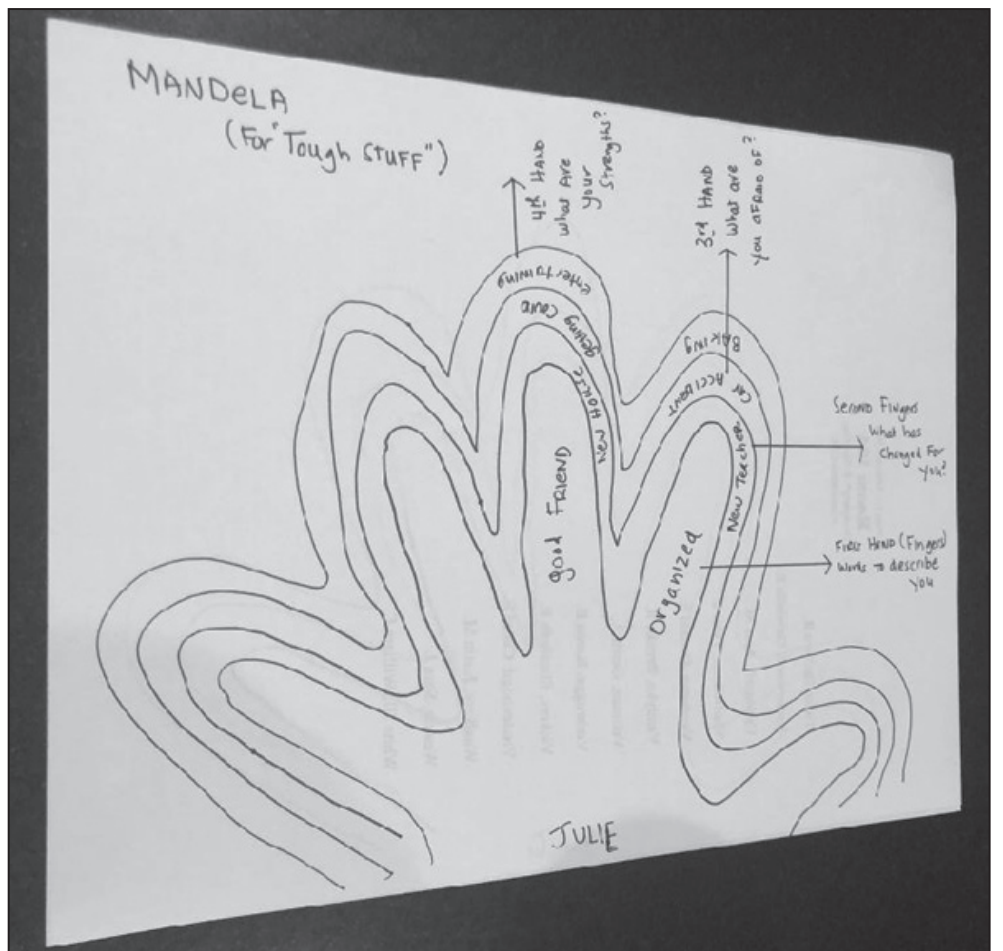 MANDELA
(For "Tough STUFF")
4th HAND
what are
your
strengths?
3rd HAND
What are
you AFRAID OF?
entertaining
getting COVID
New House
good FRIEND
BAKING
car ACCIDENT
New Teacher
Organized
Second Fingers
What has
Changed For
You?
FIRST HAND (Fingers)
Words to describe
you
JULIE